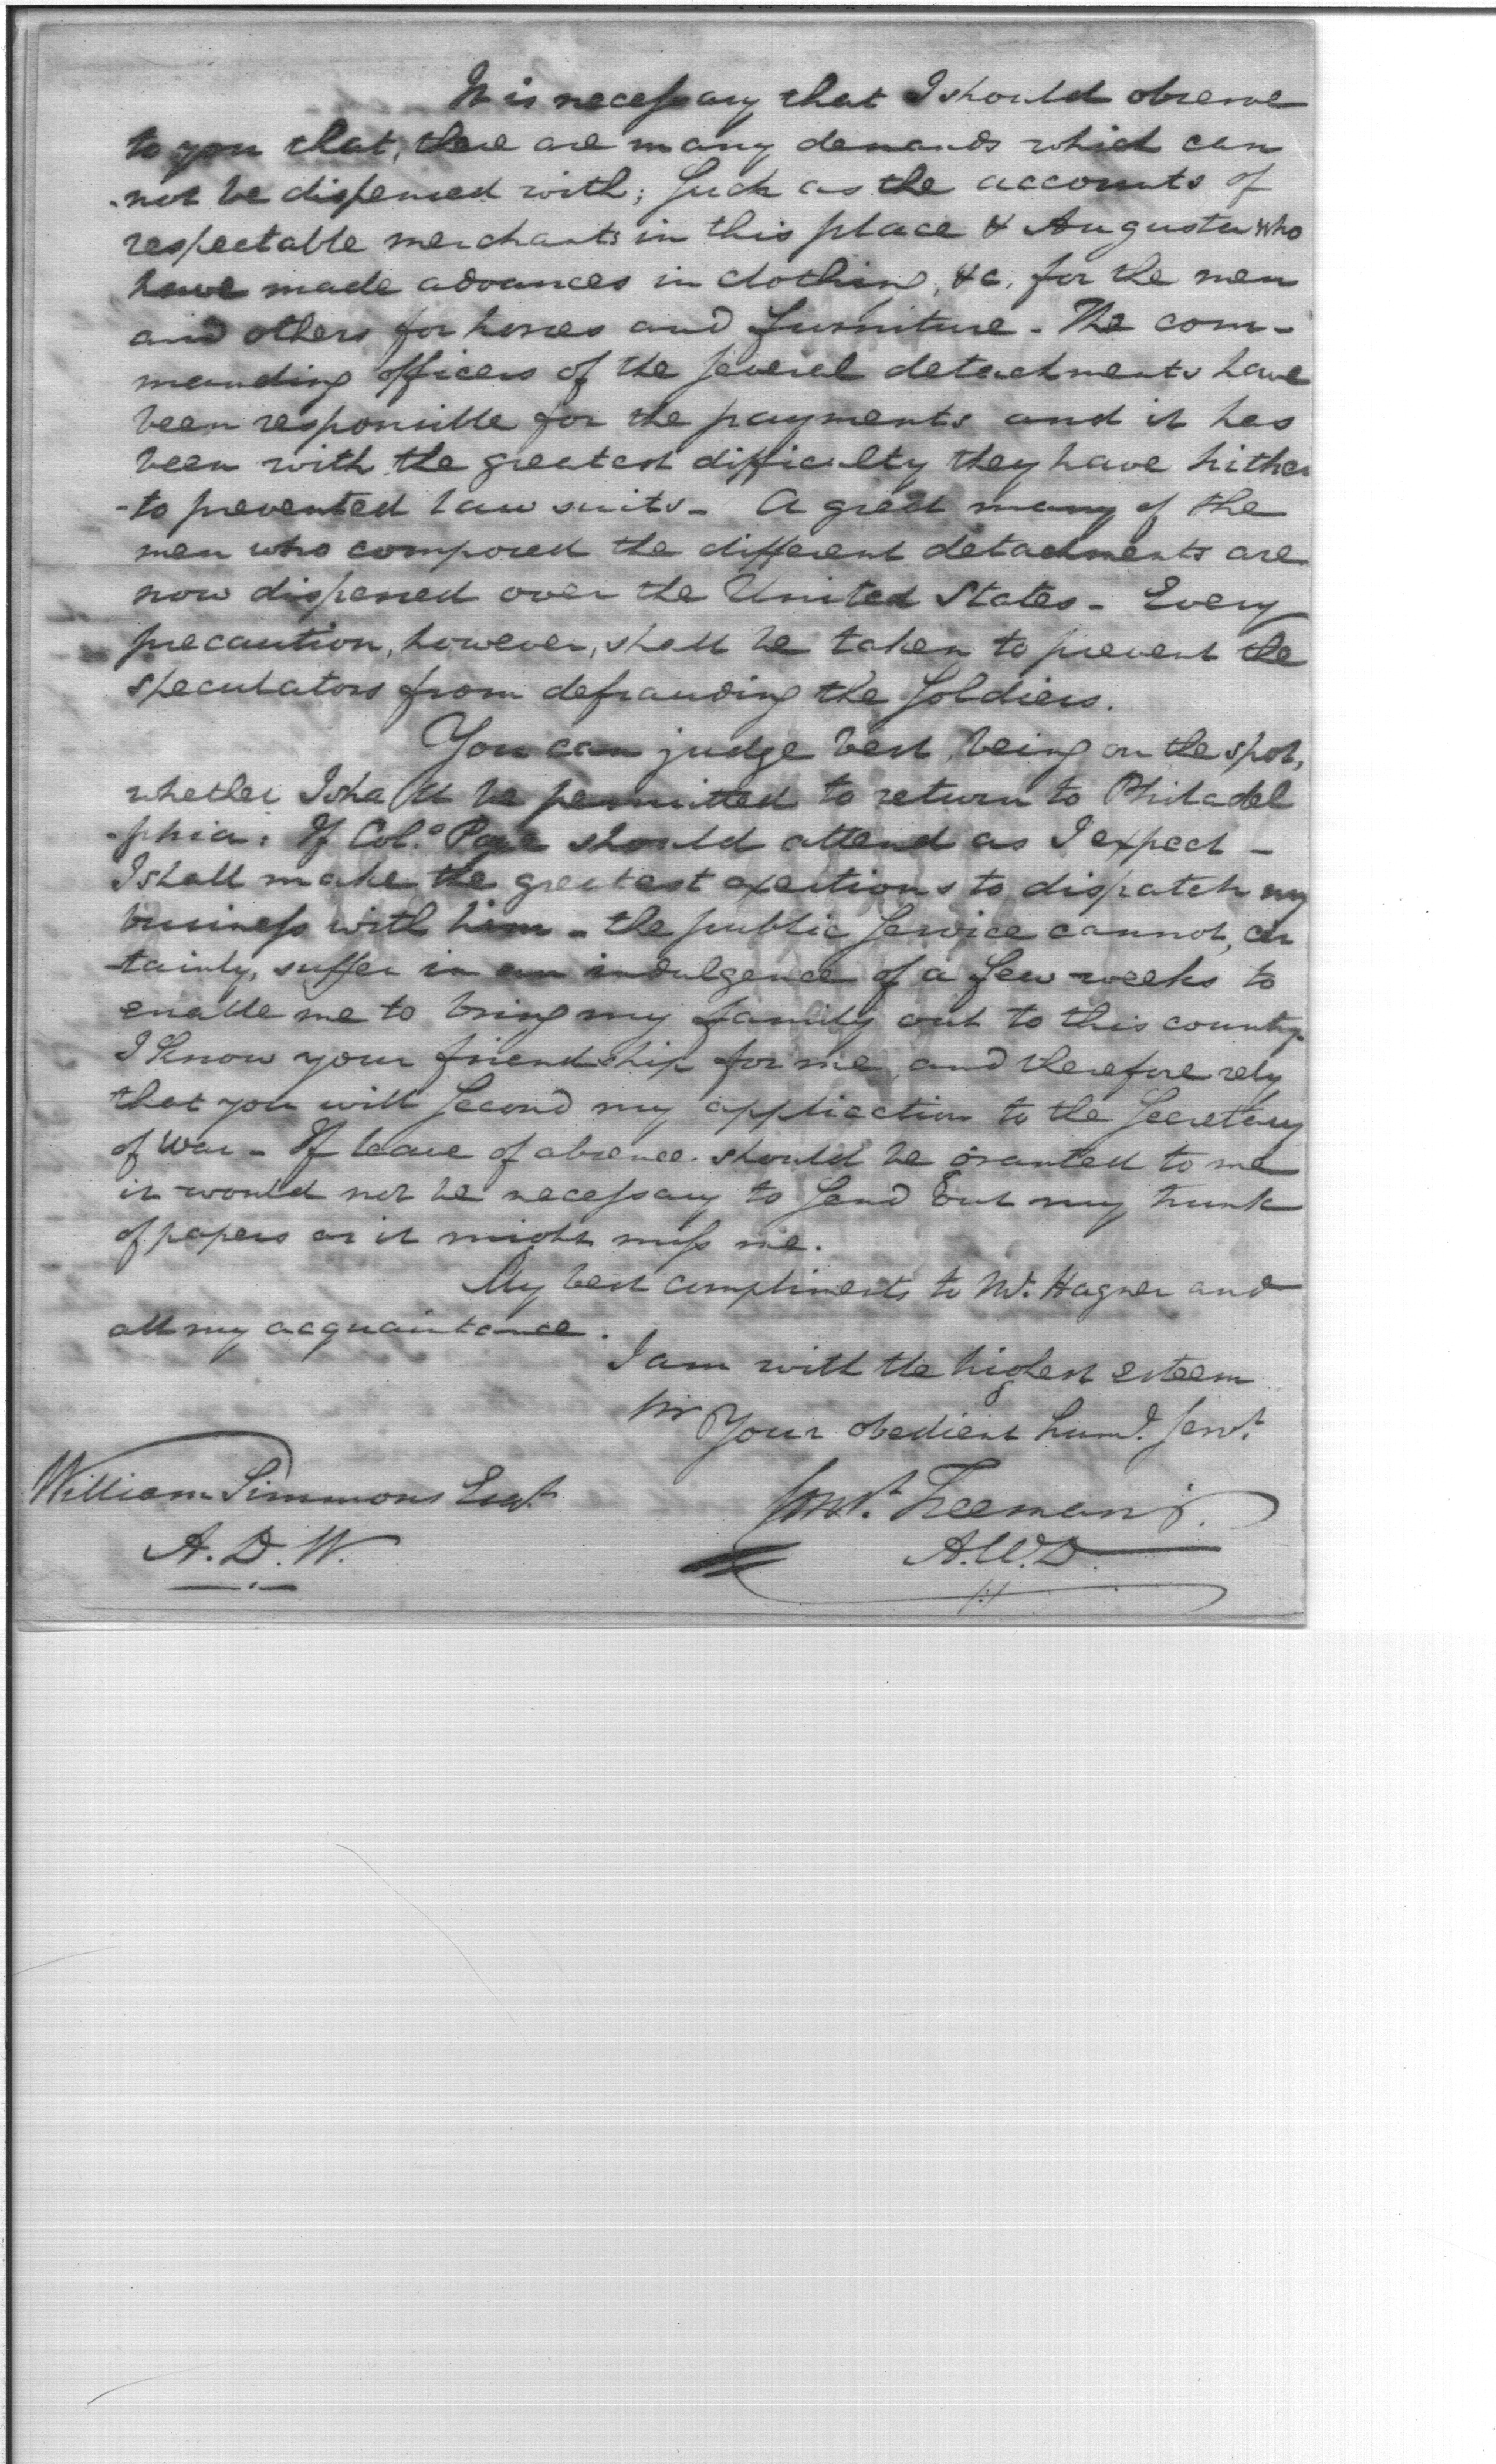 It is necessary that I should observe
to you that, there are many demands which can
-not be dispensed with; Such as the accounts of
respectable merchants in this place & Augusta who
have made advances in clothing, &c. for the men
and others for horses and furniture - The com-
manding officers of the several detachments have
been responsible for the payments and it has
been with the greatest difficulty they have hither
-to prevented law suits - A great many of the
men who composed the different detachments are
now dispersed over the United States - Every
precaution, however, shall be taken to prevent the
speculators from defrauding the Soldiers.
You can judge best, being on the spot,
whether I shall be permitted to return to Philadel
-phia: If Col.o Page should attend as I expect -
I shall make the greatest exertions to dispatch my
business with him - the public service cannot, cer
-tainly, suffer in an indulgence of a few weeks to
enable me to bring my family out to this country.
I know your friendship for me, and therefore rely
that you will second my application to the Secretary
of War - If leave of absence should be granted to me
it would not be necessary to send out my trunk
of papers as it might miss me.
My best compliments to Mr. Hagner and
all my acquaintance.
I am with the highest esteem
Sir Your obedient hum.l Serv.t
William Simmons Esq.r
A. D. W.
Const. Freeman
A.W.D.